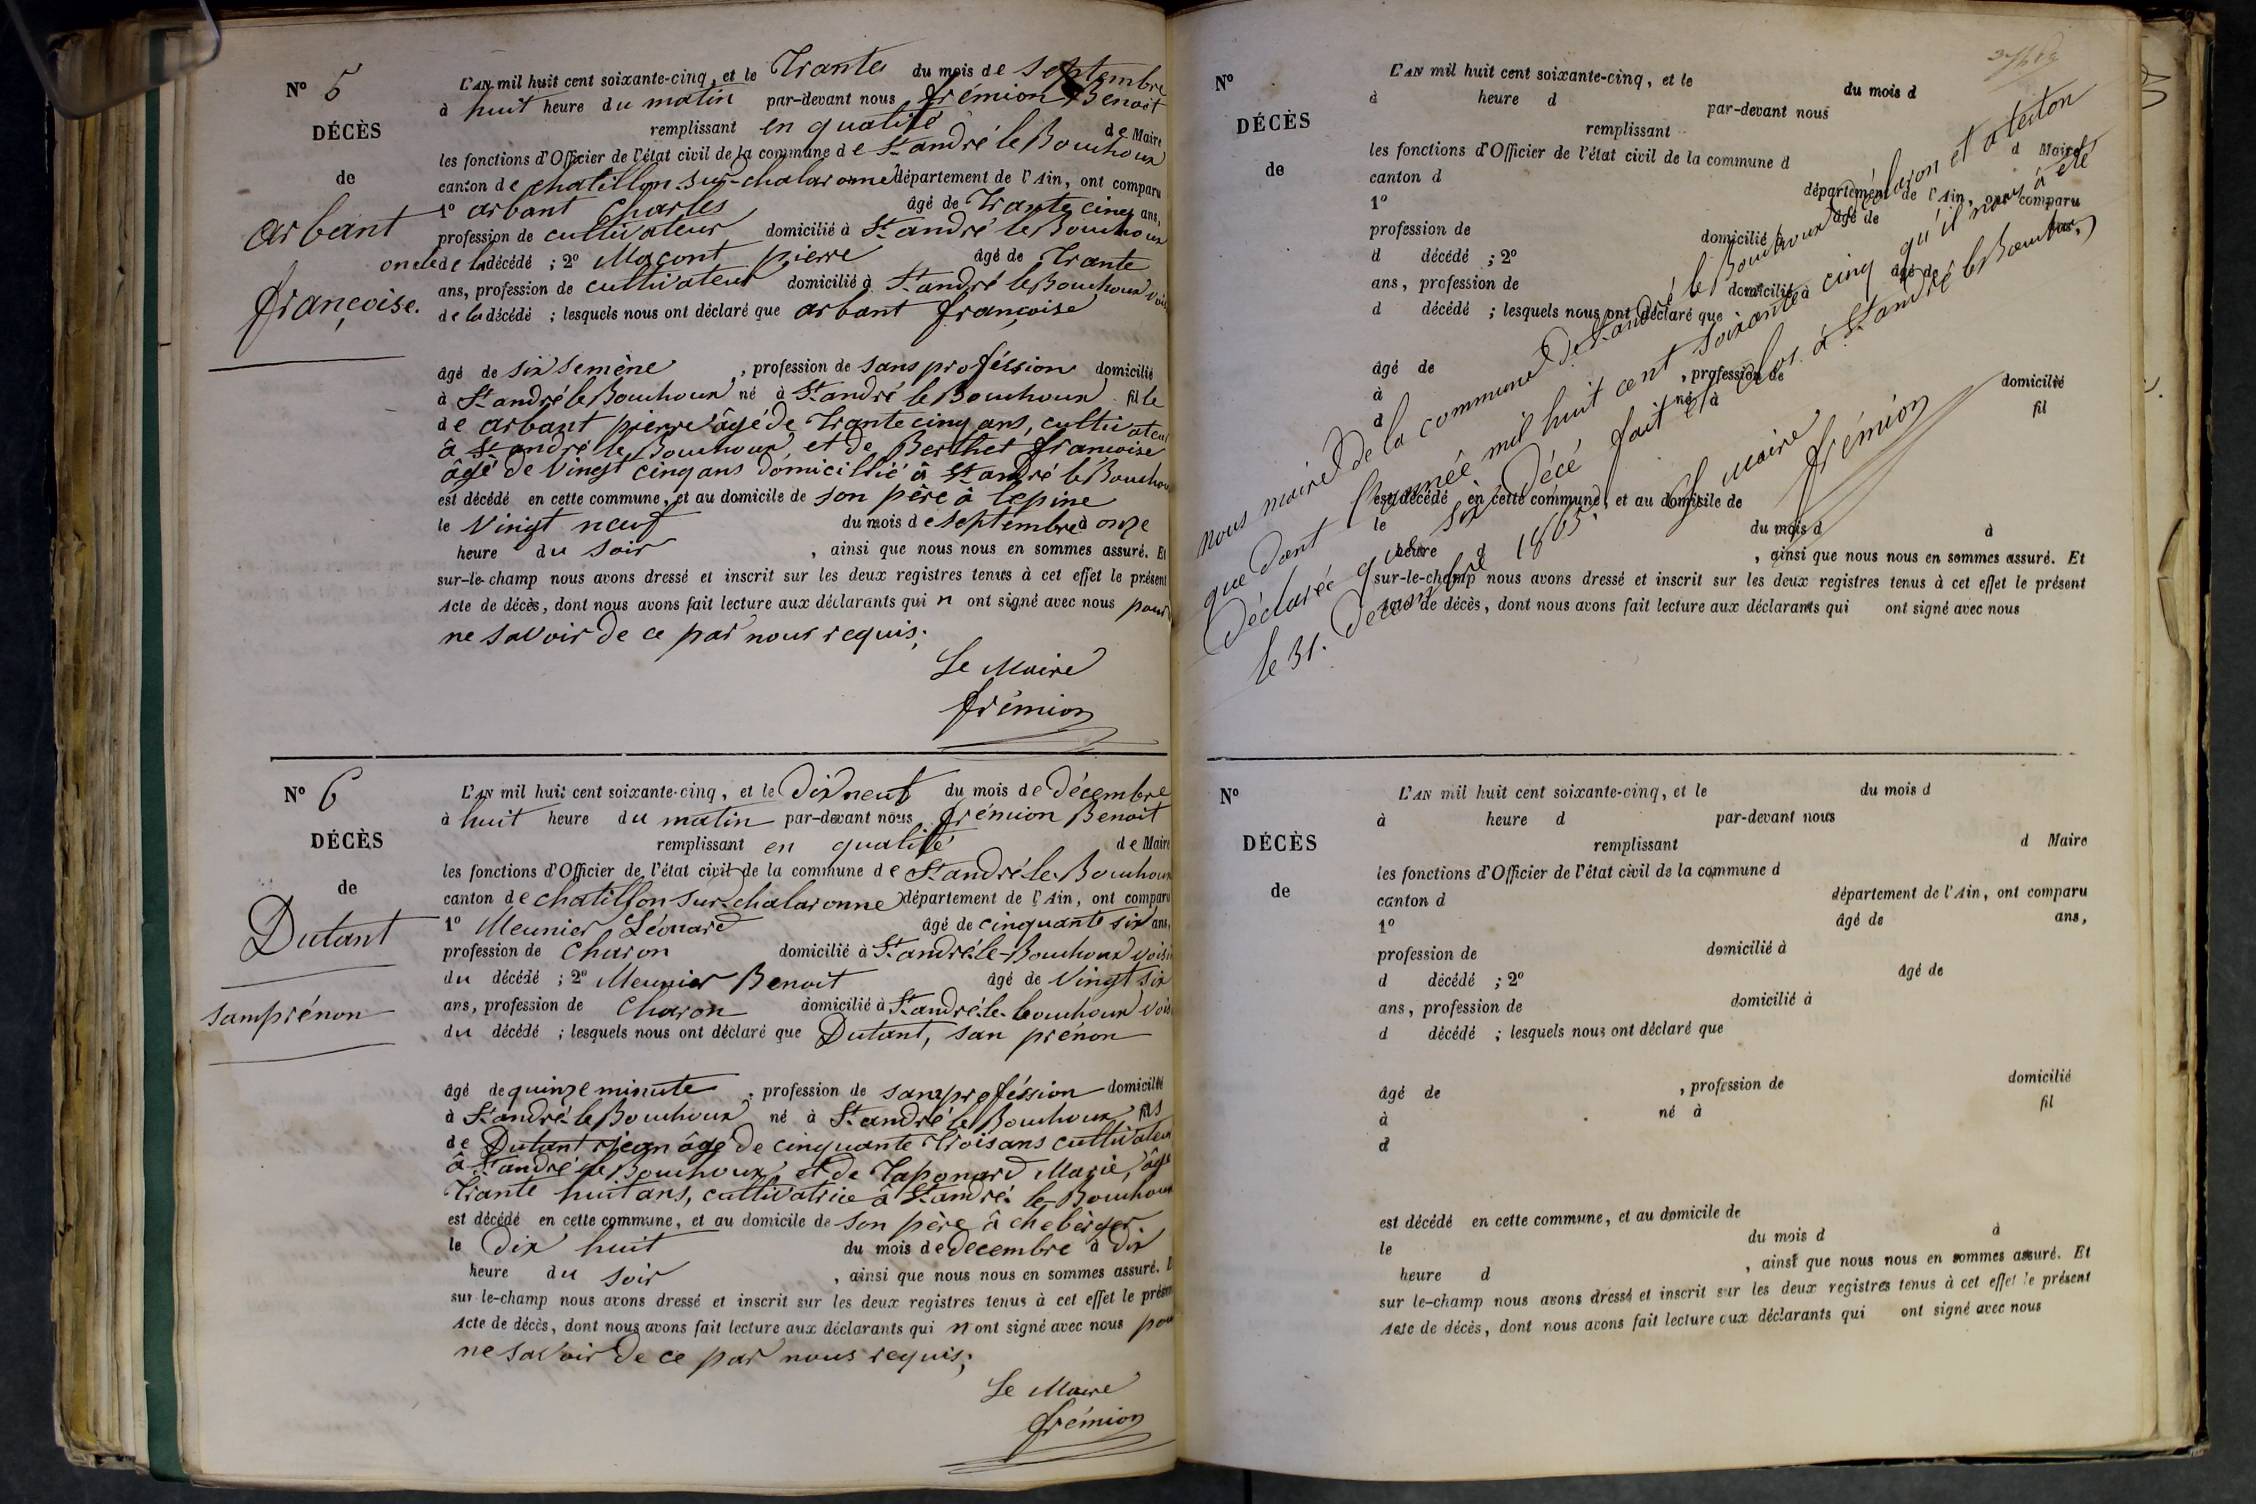 N° 5
DÉCÈS
de
arbant
françoise.
L'AN mil huit cent soixante-cinq, et le Trante du mois de septembre
à huit heure du matin par-devant nous frémion Benoit
remplissant en qualité de Maire
les fonctions d'Officier de l'état civil de la commune de St andré le Bouchoux
canton de chatillon-sur-chalaronne département de l'Ain, ont comparu
1° arbant Charles âgé de Trante cinq ans,
profession de cultivateur domicilié à St andré le Bouchoux
oncle de la décédé ; 2° Maçont pierre âgé de Trante
ans, profession de cultivateur domicilié à St andré le Bouchoux
de la décédé ; lesquels nous ont déclaré que arbant françoise
âgé de six semène, profession de sans proféssion domicilié
à St andré le Bouchoux né à St andré le Bouchoux fille
de arbant pierre âgé de Trante cinq ans, cultivateur
à St andré le Bouchoux et de Berthet francoise
âgé de Vingt cinq ans domicillié à St andré le Bouchoux
est décédé en cette commune, et au domicile de son père à lepine
le Vingt neuf du mois de septembre à onze
heure du soir, ainsi que nous nous en sommes assuré. Et
sur-le-champ nous avons dressé et inscrit sur les deux registres tenus à cet effet le présent
Acte de décès, dont nous avons fait lecture aux déclarants qui n ont signé avec nous pour
ne savoir de ce par nous requis;
Le Maire
frémion
N° 6
DÉCÈS
de
Dutant
sam prénon
L'AN mil huit cent soixante-cinq, et le Dix neuf du mois de décembre
à huit heure du matin par-devant nous frémion Benoit
remplissant en qualité de Maire
les fonctions d'Officier de l'état civil de la commune de St andré-le-Bouchoux
canton de chatillon-sur-chalaronne département de l'Ain, ont comparu
1° Meunier Léonard âgé de cinquante six ans,
profession de charon domicilié à St andré-le-Bouchoux voisin
du décédé ; 2° Meunier Benoit âgé de Vingt six
ans, profession de charon domicilié à St andré-le-bouchoux
du décédé ; lesquels nous ont déclaré que Dutant, san prénon
âgé de quinze minute, profession de sans proféssion domicilié
à St andré-le Bouchoux né à St andré le Bouchoux fils
de Dutant jean âgé de cinquante Trois ans cultivateur
à St andré le Bouchoux et de Taponard Marie, âgé
Trante huit ans, cultivatrice à St andré le Bouchoux
est décédé en cette commune, et au domicile de son père à chebèrger.
le Dix huit du mois de decembre à dix
heure du soir, ainsi que nous nous en sommes assuré. E
sur-le-champ nous avons dressé et inscrit sur les deux registres tenus à cet effet le présent
Acte de décès, dont nous avons fait lecture aux déclarants qui n ont signé avec nous pour
ne savoir de ce par nous requis;
Le Maire
frémion
N°
DÉCÈS
de
L'AN mil huit cent soixante-cinq, et le du mois d
à heure d par-devant nous
remplissant d Maire
les fonctions d'Officier de l'état civil de la commune d
canton d département de l'Ain, ont comparu
1° âgé de ans,
profession de domicilié à
d décédé ; 2° âgé de
ans, profession de domicilié à
d décédé ; lesquels nous ont déclaré que
âgé de , profession de domicilié
à né à fil
d
est décédé en cette commune, et au domicile de
le du mois d à
heure d , ainsi que nous nous en sommes assuré. Et
sur-le-champ nous avons dressé et inscrit sur les deux registres tenus à cet effet le présent
Acte de décès, dont nous avons fait lecture aux déclarants qui ont signé avec nous
nous maire de la commune de St andré le Bouchoux déclaron et atteston
que dant l'année mil huit cent soixante cinq qu'il nous à été
Déclarée que six décé fait et clos à St andré le Bouchoux,
le 31. Decembre 1865. Le maire
frémion
N°
DÉCÈS
de
L'AN mil huit cent soixante-cinq, et le du mois d
à heure d par-devant nous
remplissant d Maire
les fonctions d'Officier de l'état civil de la commune d
canton d département de l'Ain, ont comparu
1° âgé de ans,
profession de domicilié à
d décédé ; 2° âgé de
ans, profession de domicilié à
d décédé ; lesquels nous ont déclaré que
âgé de , profession de domicilié
à né à fil
d
est décédé en cette commune, et au domicile de
le du mois d à
heure d , ainsi que nous nous en sommes assuré. Et
sur le-champ nous avons dressé et inscrit sur les deux registres tenus à cet effet le présent
Acte de décès, dont nous avons fait lecture aux déclarants qui ont signé avec nous